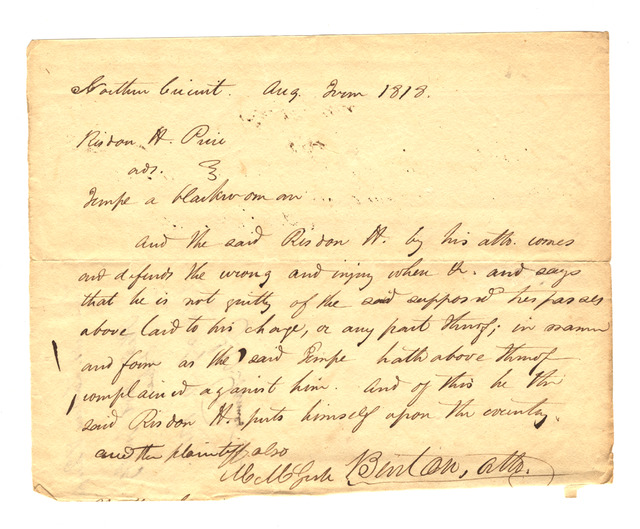 Northern Circuit. Aug. Term 1818.
Risdon H. Price
ads.
Tempe a blackwoman
And the said Risdon H. by his atto. comes
and defends the wrong and injury when &c. and says
that he is not guilty of the said supposed trespasses
above laid to his charge, or any part thereof; in manner
and form as the said Tempe hath above thereof
complained against him. And of this he the
said Risdon H. puts himself upon the country.
and the plaintiff also
Benton, atto.